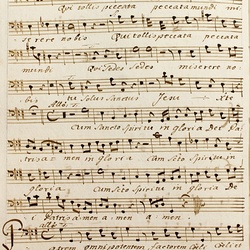 Qui tollis peccata peccata mundi mi
serere nobis Qui tollis peccata peccata
mundi Qui Sedes Sedes miserere no
bis tu Solus Sanctus Jesu Xte
Cum Sancto Spiritu in gloria Dei Pa
tris a men in gloria Cum Scto Spiritu in
gloria Cum Scto Spiritu in gloria De
i Patris a men a men a men.
atrem omnipotentem factorem Coeli